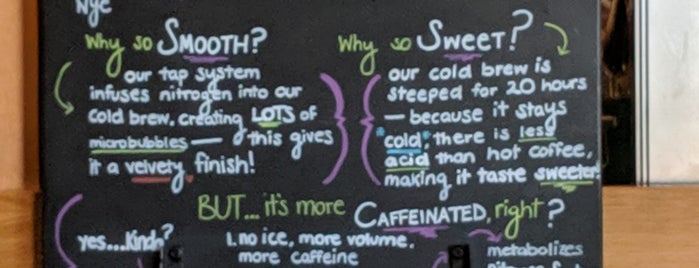 NYC
Why so SMOOTH?
our tap system
infuses nitrogen into our
cold brew, creating LOTS of
microbubbles — this gives
it a velvety finish!
Why so SWEET?
our cold brew is
steeped for 20 hours
— because it stays
"cold", there is less
acid than hot coffee,
making it taste sweeter!
BUT... it's more CAFFEINATED, right?
yes...Kinda?
1. no ice, more volume,
more caffeine
metabolizes